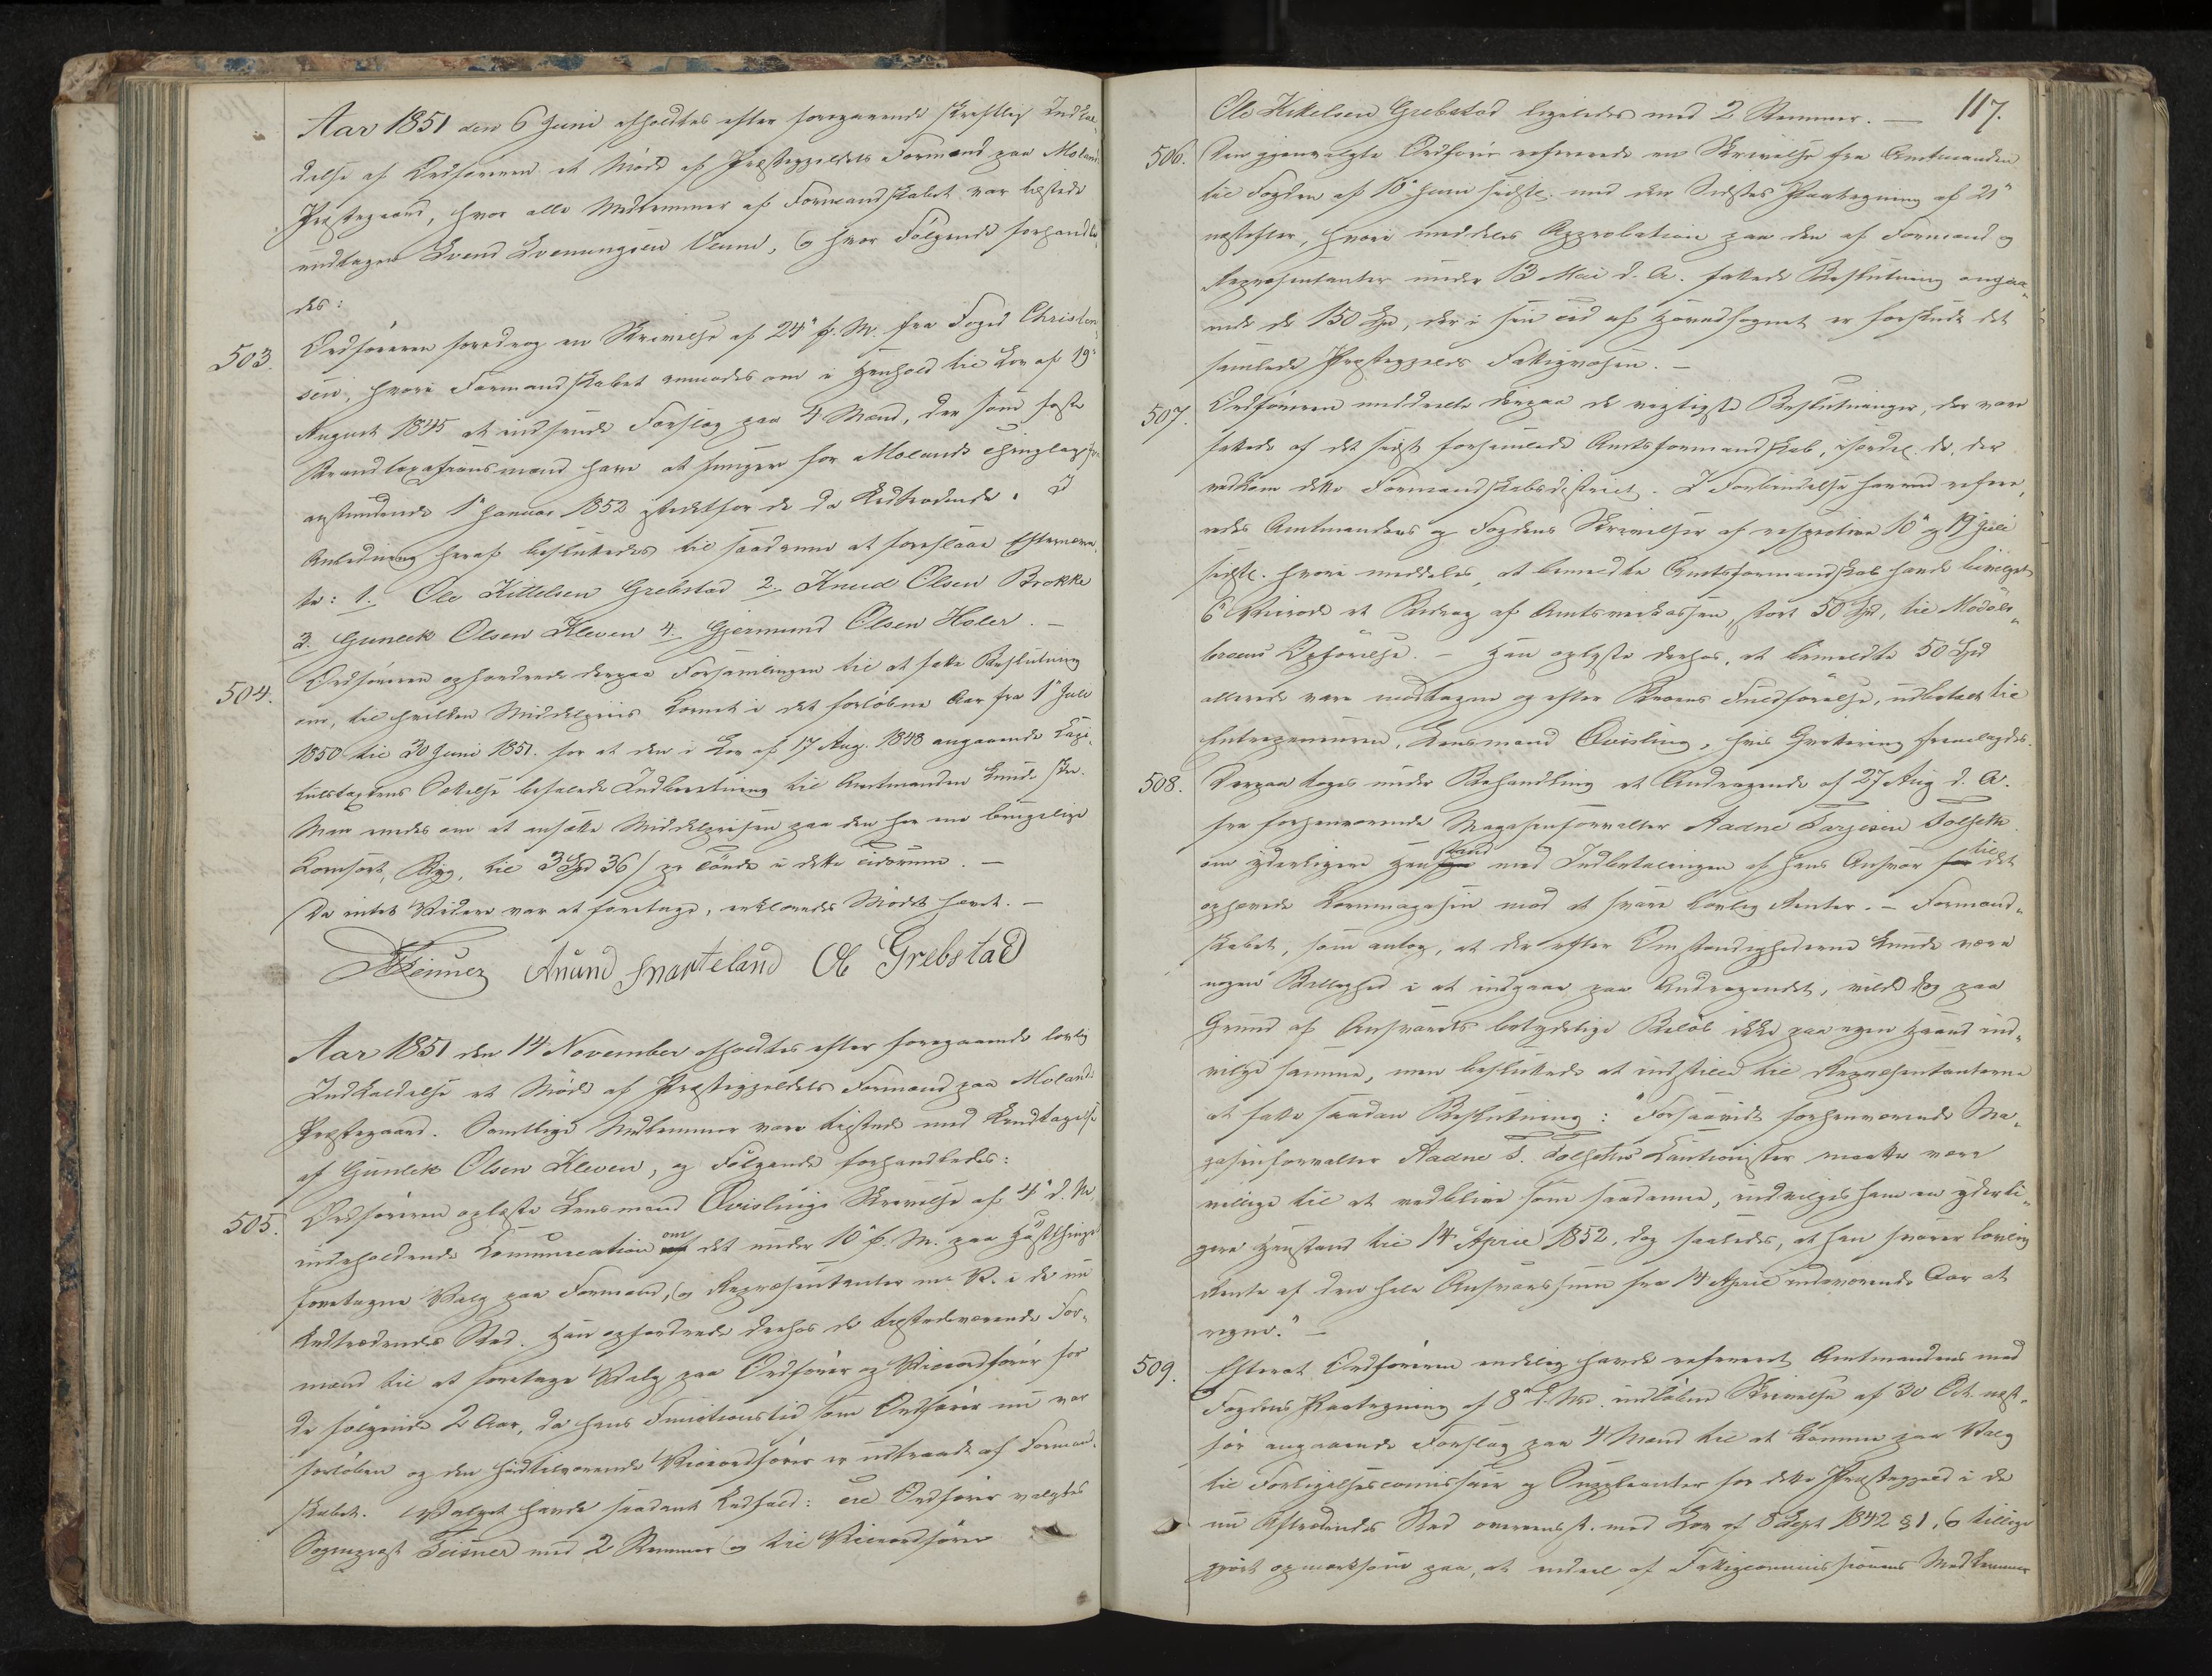 Aar 1851 den 6 Juni afholdtes efter foregaaende skriftlig Indkal-
delse af Ordføreren et Møde af Præstegjeldets Formænd paa Molands
Præstegaard, hvor alle Medlemmer af Formandskabet var tilstede
undtagen Svend Svenungsen Veum, og hvor Følgende forhandle-
des:
503. Ordføreren foredrog en Skrivelse af 24de f. M. fra Foged Christen-
sen, hvori Formandskabet anmodes om i Henhold til Lov af 19de
August 1845 at indsende Forslag paa 4 Mænd, der som faste
Strandtaxationsmænd have at fungere for Molands Thinglag fra
anstundende 1ste Januar 1852 istedetfor de da Udtrædende. I
Anledning heraf besluttedes til saadanne at foreslaae Efternævn-
te: 1. Ole Kittelsen Grebstad 2. Knud Olsen Brokke
3. Gunleik Olsen Kleven 4. Gjermund Olsen Holer. —
504. Ordføreren opfordrede derpaa Forsamlingen til at fatte Beslutning
om, til hvilken Middelpriis Kornet i det forløbne Aar fra 1ste Juli
1850 til 30 Juni 1851. for at den i Lov af 17 Aug. 1848 angaaende Capi-
tulstaxtens Sættelse befalede Indberetning til Amtmanden kunde skee.
Man enedes om at ansætte Middelprisen paa den her me brugelige
Kornsort, Byg, til 3 Spd 36 s pr Tønde i dette Tidsrum. —
Da intet Videre var at foretage, erklæredes Mødet hævet. —
Teisner Anund Svarteland Ole Grebstad
Aar 1851 den 14 November afholdtes efter foregaaende lovlig
Indkaldelse et Møde af Præstegjeldets Formænd paa Molands
Præstegaard. Samtlige Medlemmer vare tilstede med Undtagelse
af Gunleik Olsen Kleven, og Følgende forhandledes:
505. Ordføreren oplæste Lensmand Qvislings Skrivelse af 4de d. M.
indeholdende Communication om det under 10de f. M. paa Høstthinget
foretagne Valg paa Formænd, og Repræsentanter m. V. i de nu
Udtrædendes Sted. Han opfordrede derhos de tilstedeværende For-
mænd til at foretage Valg paa Ordfører og Viceordfører for
de følgende 2 Aar, da hans Functionstid som Ordfører nu var
forløben og den hidtilværende Viceordfører er udtraadt af Formand-
skabet. Valget havde saadant Udfald: til Ordfører valgtes
Sognepræst Teisner med 2 Stemmer og til Viceordfører
117.
Ole Kittelsen Grebstad ligeledes med 2 Stemmer. —
506. Den gjenvalgte Ordfører refererede en Skrivelse fra Amtmanden
til Fogden af 10de Juni sidstl. med den Sidstes Paategning af 21de
næstefter, hvori meddeles Approbation paa den af Formænd og
Repræsentanter under 13 Mai d. A. fattede Beslutning angaa-
ende de 150 Spd, der i sin Tid af Hovedsognet er forskudt det
samlede Præstegjelds Fattigvæsen. —
507. Ordføreren meddeelte derpaa de vigtigste Beslutninger, der vare
fattede af det sidst forsamlede Amtsformandskab, isærdel. de, der
vedkom dette Formandskabsdistrict. I Forbindelse hermed refere-
redes Amtmandens og Fogdens Skrivelser af respective 10de og 19de Juli
sidstl. hvori meddeles, at bemeldte Amtsformandskab havde bevilget
et Bidrag af Amtsveikassen, stort 50 Spd, til
Opførelse. — Han oplyste derhos, at bemeldte 50 Spd
allerede vare modtagne og efter Broens Fuldførelse, udbetalt til
Entrepreneuren, Lensmand Qvisling, hvis Qvittering fremlagdes.
508. Derpaa toges under Behandling et Andragende af 27 Aug d. A.
fra forhenværende Magasinforvalter Aadne Tarjesen Tolsette
om yderligere Henstand med Indbetalingen af hans Ansvar til det
ophævede Kornmagasin mod at svare lovlig Renter. — Formand-
skabet, som antog, at der efter Omstændighederne kunde være
nogen Billighed i at indgaae paa Andragendet, vilde dog paa
Grund af Ansvarets betydelige Beløb ikke paa egen Haand ind-
vilge samme, men besluttede at indstille til Repræsentanterne
at fatte saadan Beslutning: "Forsaavidt forhenværende Ma-
gasinforvalter Aadne T. Tolsettes Cautionister maatte være
villige til at vedblive som saadanne, indvilges ham en yderli-
gere Henstand til 14 April 1852, dog saaledes, at han svarer lovlig
Rente af den hele Ansvarssum fra 14 April indeværende Aar at
regne." —
509. Efterat Ordføreren endelig havde refereret Amtmandens med
Fogdens Paategning af 8de d. Md. indløbne Skrivelse af 30 Oct. næst-
før angaaende Forslag paa 4 Mænd til at komme paa Valg
til Forligelsescommissairer og Suppleanter for dette Præstegjeld i de
nu Aftrædendes Sted overeensst. med Lov af 8 Sept 1842 § 1, og tillige
gjort opmærksom paa, at endeel af Fattigcommissionens Medlemmer